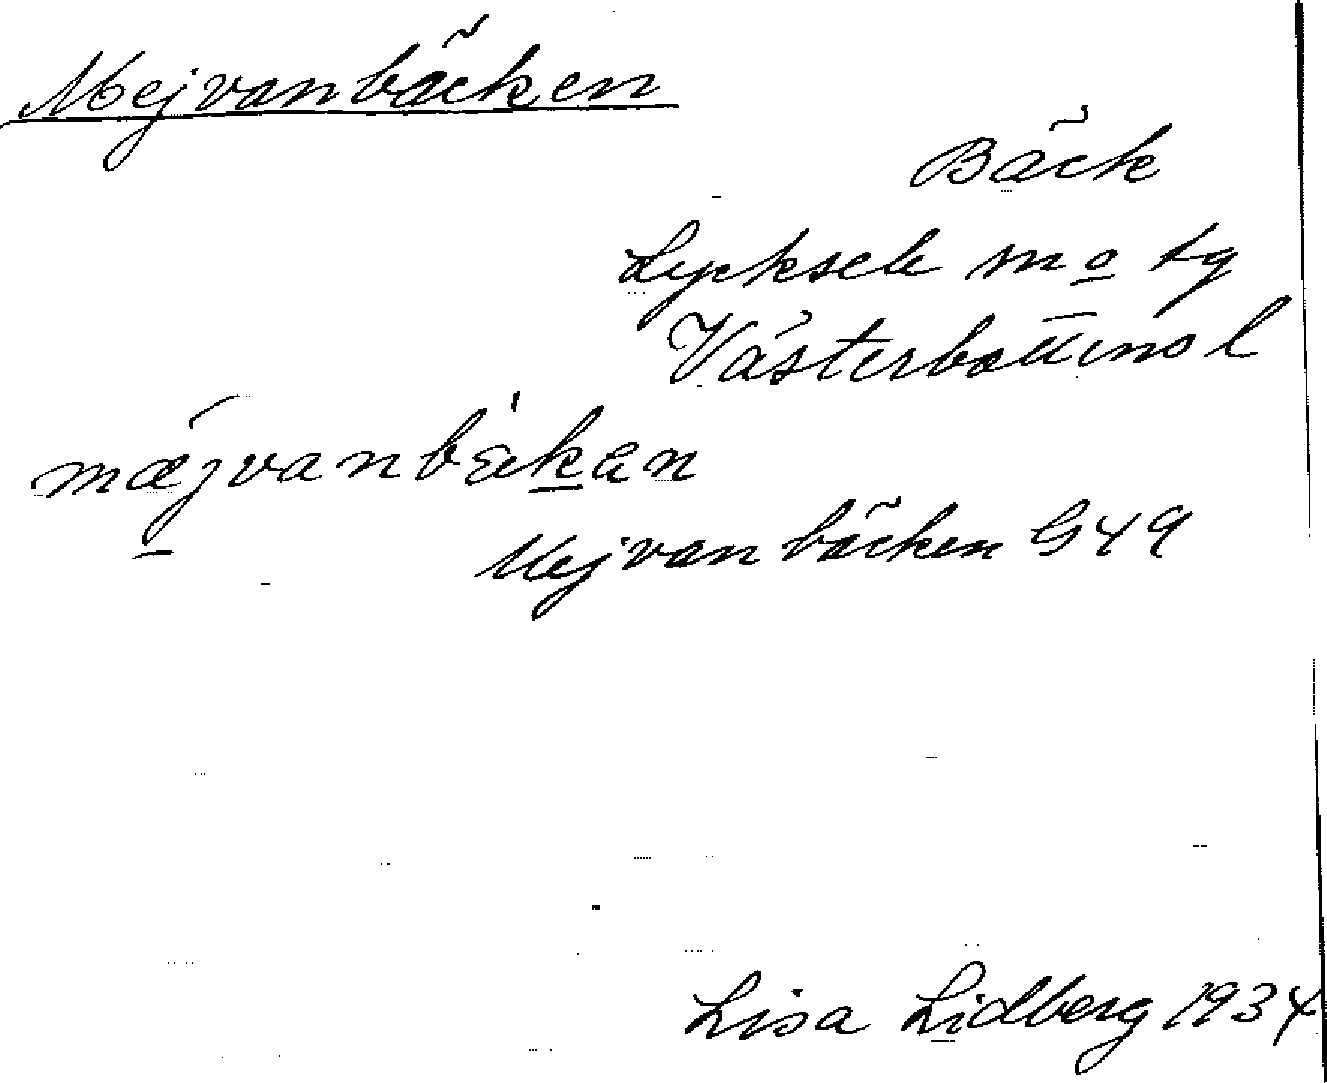 Mejvanbäcken
Bäck
Lycksele m o tg
Västerbottens l
mæjvanbækan
Mejvanbäcken G 49
Lisa Lidberg 1934